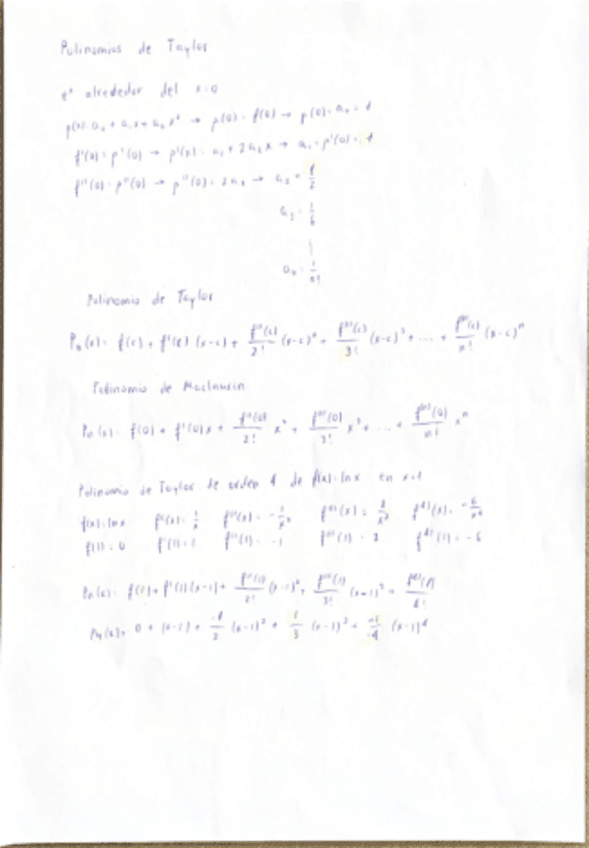 Polinomios de Taylor
eˣ alrededor del x=0
p(x)=a₀+a₁x+a₂x² → p(0)=f(0) → p(0)=a₀=1
f'(0)=p'(0) → p'(x)=a₁+2a₂x → a₁=p'(0)=1
f''(0)=p''(0) → p''(0)=2a₂ → a₂=1/2
a₃=1/6
⋮
aₙ=1/n!
Polinomio de Taylor
Pₙ(x)= f(c)+f'(c)(x-c)+ f''(c)/2! (x-c)²+ f'''(c)/3! (x-c)³+ .... + fⁿ(c)/n! (x-c)ⁿ
Polinomio de Maclaurin
Pₙ(x)= f(0)+f'(0)x+ f''(0)/2! x²+ f'''(0)/3! x³+ ... + f⁽ⁿ⁾(0)/n! xⁿ
Polinomio de Taylor de orden 4 de f(x)=lnx en x=1
f(x)=lnx f'(x)=1/x f''(x)=-1/x² f'''(x)=2/x³ f⁽⁴⁾(x)=-6/x⁴
f(1)=0 f'(1)=1 f''(1)=-1 f'''(1)=2 f⁽⁴⁾(1)=-6
f(1)+f'(1)(x-1)+ f''(1)/2! (x-1)²+ f'''(1)/3! (x-1)³+ f⁽⁴⁾(1)/4!
P₄(x)= 0+(x-1)+ -1/2 (x-1)²+ 1/3 (x-1)³+ (x-1)⁴